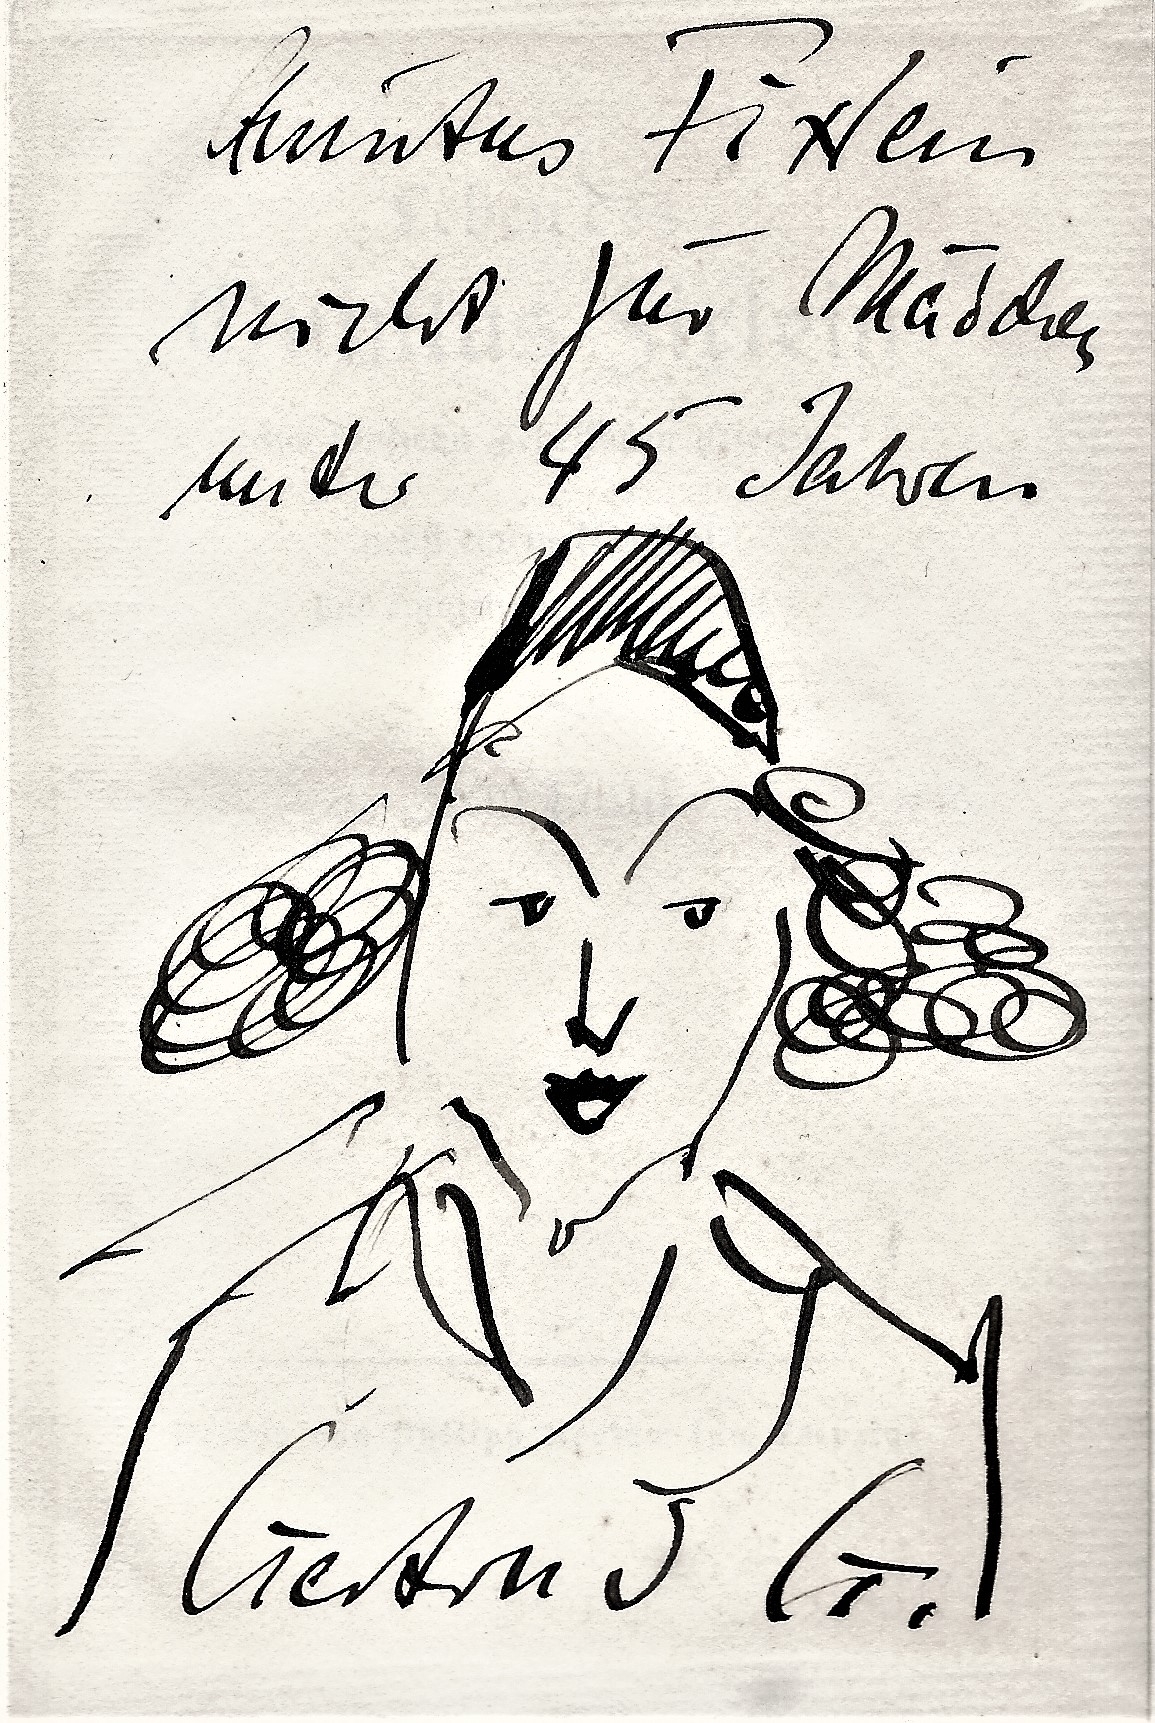 Quintus Fixlein
nicht für Mädchen
unter 45 Jahren
Gertrud G.